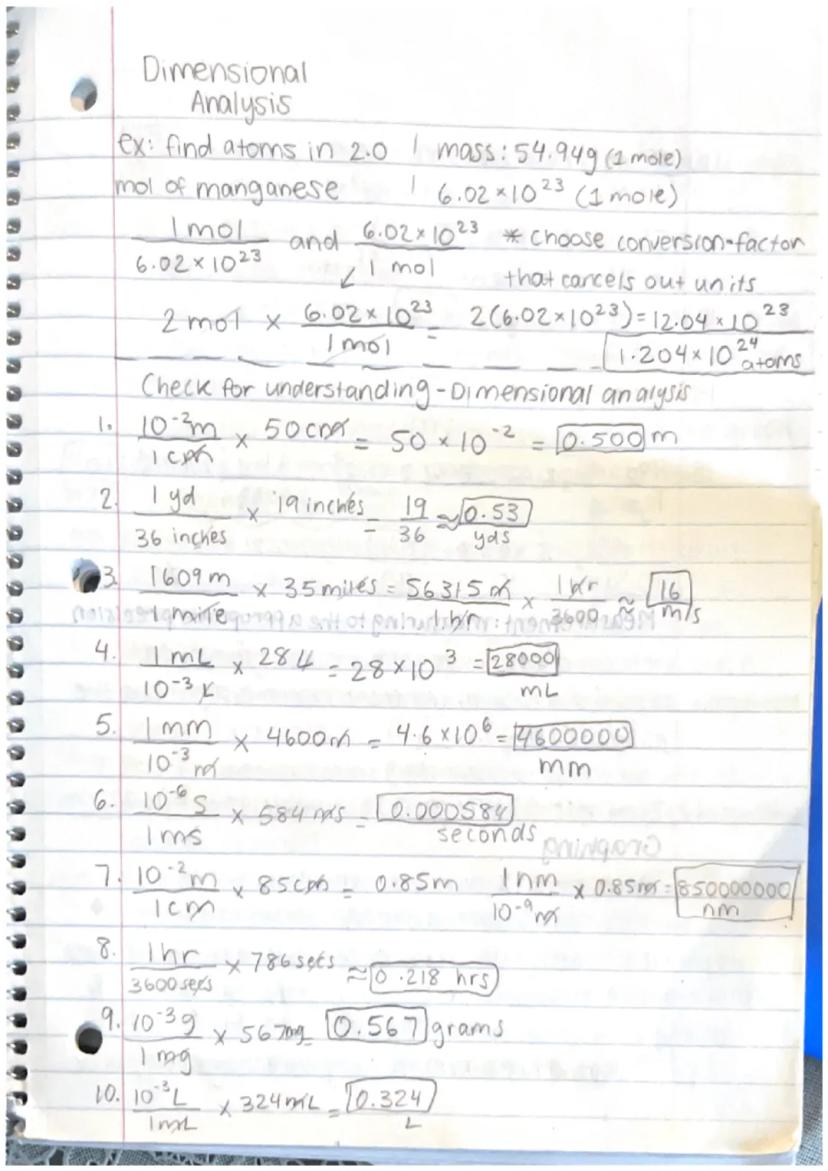 Dimensional
Analysis
ex: find atoms in 2.0 | mass: 54.94g (1 mole)
mol of manganese | 6.02×10²³ (1 mole)
1 mol / 6.02×10²³ and 6.02×10²³ / 1 mol * choose conversion-factor
that cancels out units
2 mol × 6.02×10²³ / 1 mol = 2(6.02×10²³) = 12.04×10²³
1.204×10²⁴ atoms
Check for understanding - Dimensional analysis
1. 10⁻²m / 1 cm × 50 cm = 50×10⁻² = 0.500 m
2. 1 yd / 36 inches × 19 inches = 19/36 ≈ 0.53 yds
3. 1609 m / 1 mile × 35 miles = 56315 m / 1 hr × 1 hr / 3600 ≈ 16 m/s
4. 1 mL / 10⁻³ L × 28 L = 28×10³ = 28000 mL
5. 1 mm / 10⁻³ m × 4600 m = 4.6×10⁶ = 4600000 mm
6. 10⁻⁶ s / 1 ms × 584 ms = 0.000584 seconds
7. 10⁻²m / 1 cm × 85 cm = 0.85m 1 nm / 10⁻⁹ m × 0.85 m = 850000000 nm
8. 1 hr / 3600 secs × 786 secs ≈ 0.218 hrs
9. 10⁻³g / 1 mg × 567mg = 0.567 grams
10. 10⁻³L / 1 mL × 324 mL = 0.324 L